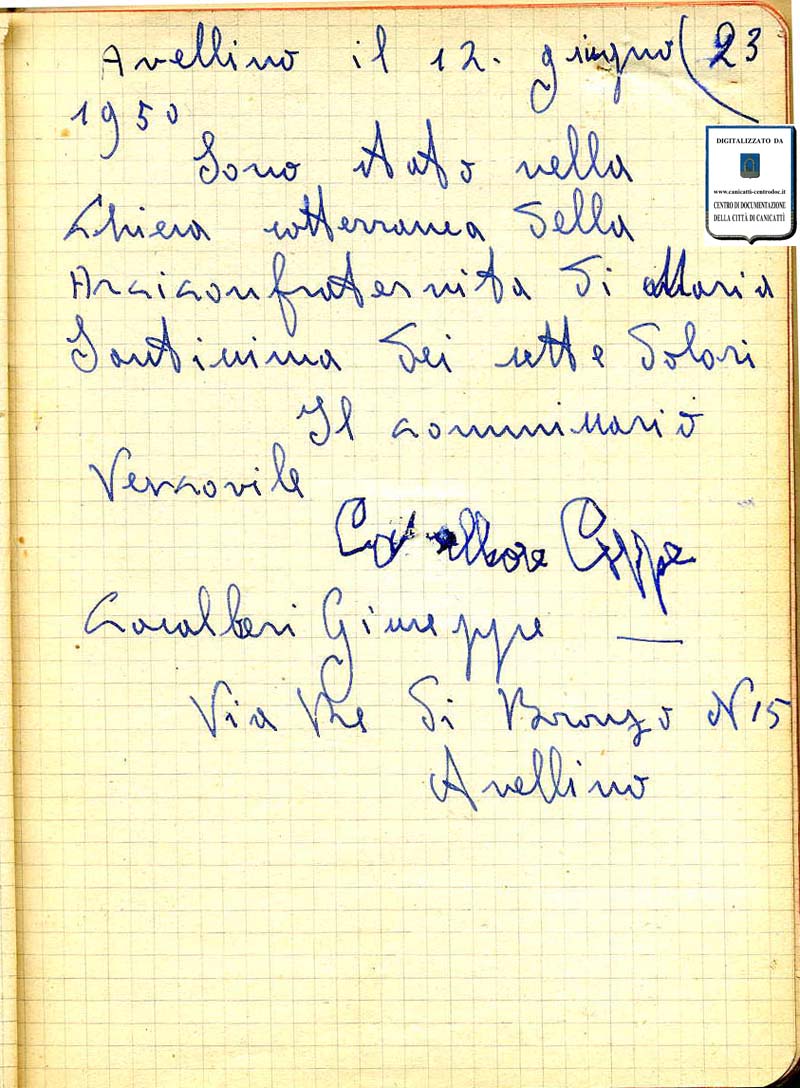 Avellino il 12. giugno 23
1950
Sono stato nella
Chiesa sotterranea della
Arciconfraternita di Maria
Santissima dei sette dolori
Il commissario
Vescovile
Giuseppe
Via Re di Bronzo N 15
Avellino
DIGITALIZZATO DA
www.canicatti-centrodoc.it
CENTRO DI DOCUMENTAZIONE
DELLA CITTÀ DI CANICATTÌ